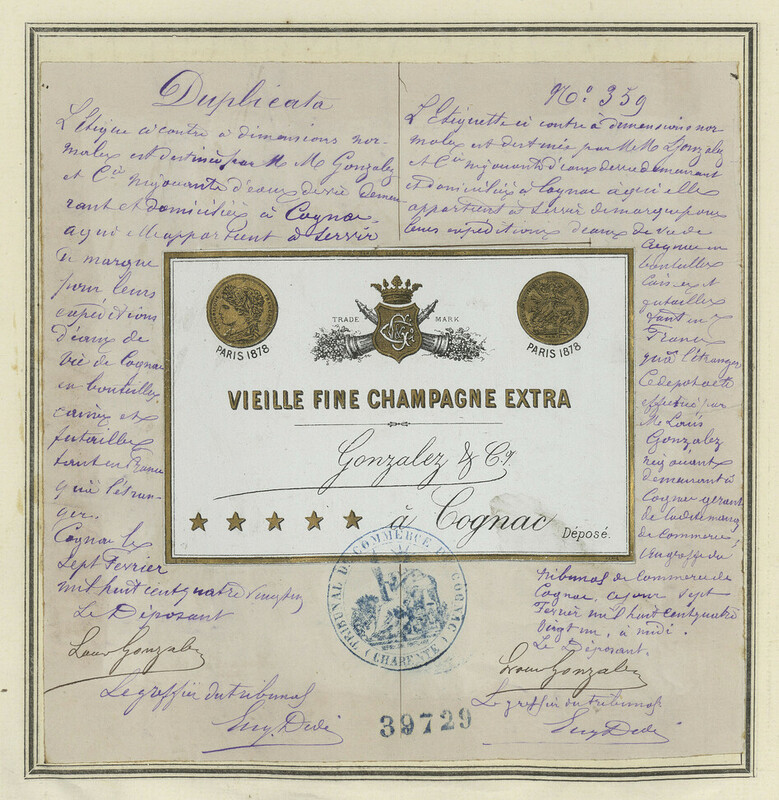 Duplicata
L'Etiquette ci contre à dimensions nor-
males est destinée par M. M. Gonzalez
et Cie négociants d'eaux de vie demeu-
rant et domiciliés à Cognac,
a qui elle appartient à servir
de marque
pour leurs
expéditions
d'eaux de
vie de Cognac
en bouteilles,
caisses et
futailles
tant en France
qu'à l'étran-
ger.
Cognac le
sept Février
mil huit cent quatre vingt un
Le Déposant
Louis Gonzalez
Le greffier du tribunal
Eug. Dedé
No. 359
L'Etiquette ci contre à dimensions nor-
males est destinée par M. M. Gonzalez
et Cie négociants d'eaux de vie demeurant
et domiciliés à Cognac à qui elle
appartient à servir de marque pour
leurs expéditions d'eaux de vie de
Cognac en
bouteilles
caisses et
futailles
tant en
France
qu'à l'étranger
Ce dépôt a été
effectué par
Mr Louis
Gonzalez
négociant
demeurant à
Cognac gérant
de la dite marque
de commerce
au greffe du
tribunal de Commerce de
Cognac, ce jour sept
Février mil huit cent quatre
vingt un, à midi.
Le Déposant.
Louis Gonzalez
Le greffier du tribunal
Eug. Dedé
TRADE MARK
PARIS 1878
PARIS 1878
VIEILLE FINE CHAMPAGNE EXTRA
Gonzalez & Cie
à Cognac
Déposé.
TRIBUNAL DE COMMERCE DE COGNAC
(CHARENTE)
39729